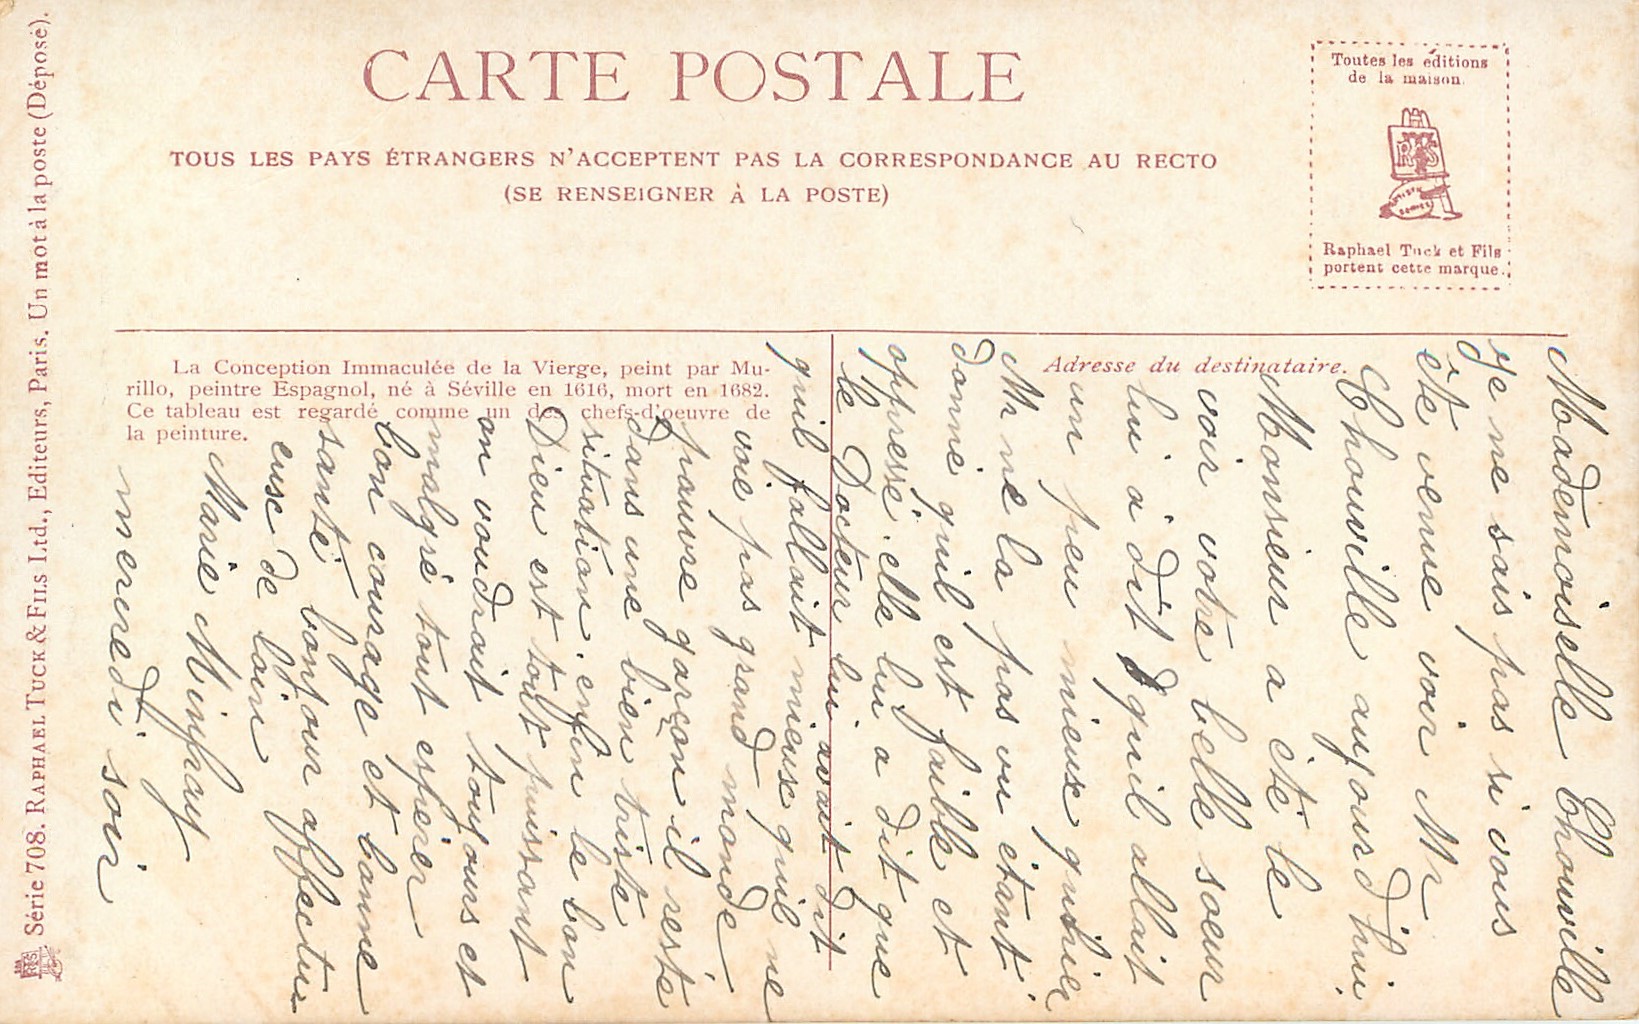 CARTE POSTALE
TOUS LES PAYS ÉTRANGERS N'ACCEPTENT PAS LA CORRESPONDANCE AU RECTO
(SE RENSEIGNER À LA POSTE)
Toutes les éditions
de la maison
Raphael Tuck et Fils
portent cette marque.
Série 708. RAPHAEL TUCK & FILS Ltd., Editeurs, Paris. Un mot à la poste (Déposé).
La Conception Immaculée de la Vierge, peint par Mu-
rillo, peintre Espagnol, né à Séville en 1616, mort en 1682.
Ce tableau est regardé comme un des chefs-d'oeuvre de
la peinture.
Adresse du destinataire.
Mademoiselle Chouville
Je ne sais pas si vous
ête venue voir Mr
Chouville aujourd'hui
Monsieur a été le
voir votre belle soeur
lui a dit quil allait
un peu mieux quhier
Mr ne la pas vu étant
donné quil est faible et
oppressé. elle lui a dit que
le Docteur lui avait dit
quil fallait mieux quil ne
voie pas grand monde
pauvre garçon il reste
dans une bien triste
situation. enfin le bon
Dieu est tout puissant
on voudrait toujours et
malgré tout espérer
bon courage et bonne
santé bonjour affectu
euse de loin
Marie Minfray
mercredi soir